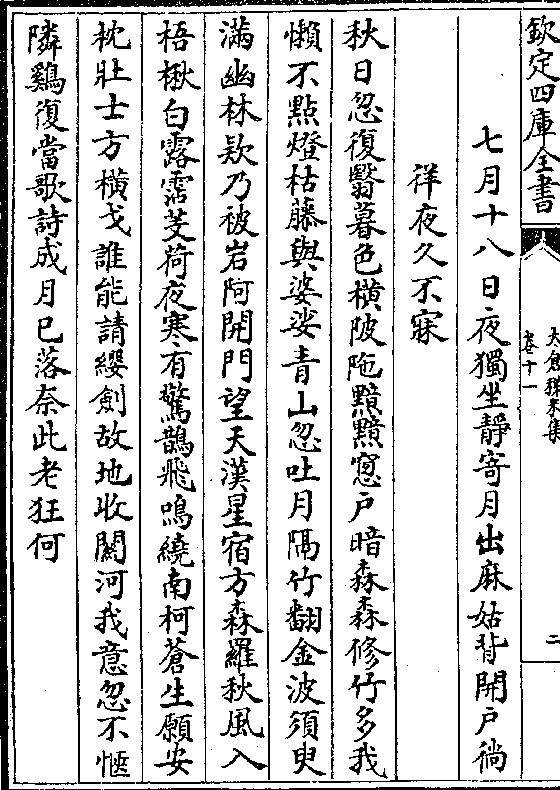 欽定四庫全書
太倉稊米集
卷十一
二
七月十八日夜獨坐靜寄月出麻姑背開户徜
徉夜久不寐
秋日忽復翳暮色橫陂陁黯黯窓户暗森森修竹多我
懶不點燈枯藤與婆娑青山忽吐月隔竹翻金波須臾
滿幽林欵乃被岩阿開門望天漢星宿方森羅秋風入
梧楸白露霑芰荷夜寒有驚鵲飛鳴繞南柯蒼生願安
枕壯士方橫戈誰能請纓劍故地收闗河我意忽不愜
隣鷄復當歌詩成月已落奈此老狂何